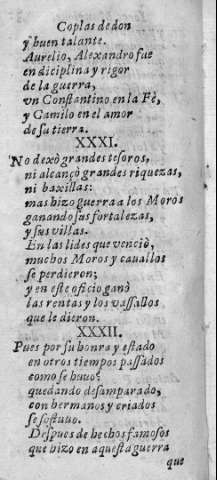 Coplas de don
y buen talante.
Aurelio, Alexandro fue
en diciplina y rigor
de la guerra,
vn Constantino en la Fè,
y Camilo en el amor
de su tierra.
XXXI.
No dexò grandes tesoros,
ni alcançò grandes riquezas,
ni baxillas:
mas hizo guerra a los Moros
ganando sus fortalezas,
y sus villas.
En las lides que venciò,
muchos Moros y cauallos
se perdieron;
y en este oficio ganò
las rentas y los vassallos
que le dieron.
XXXII.
Pues por su honra y estado
en otros tiempos passados
como se huuo;
quedando desamparado,
con hermanos y criados
se sostuuo.
Despues de hechos famosos
que hizo en aquesta guerra
que